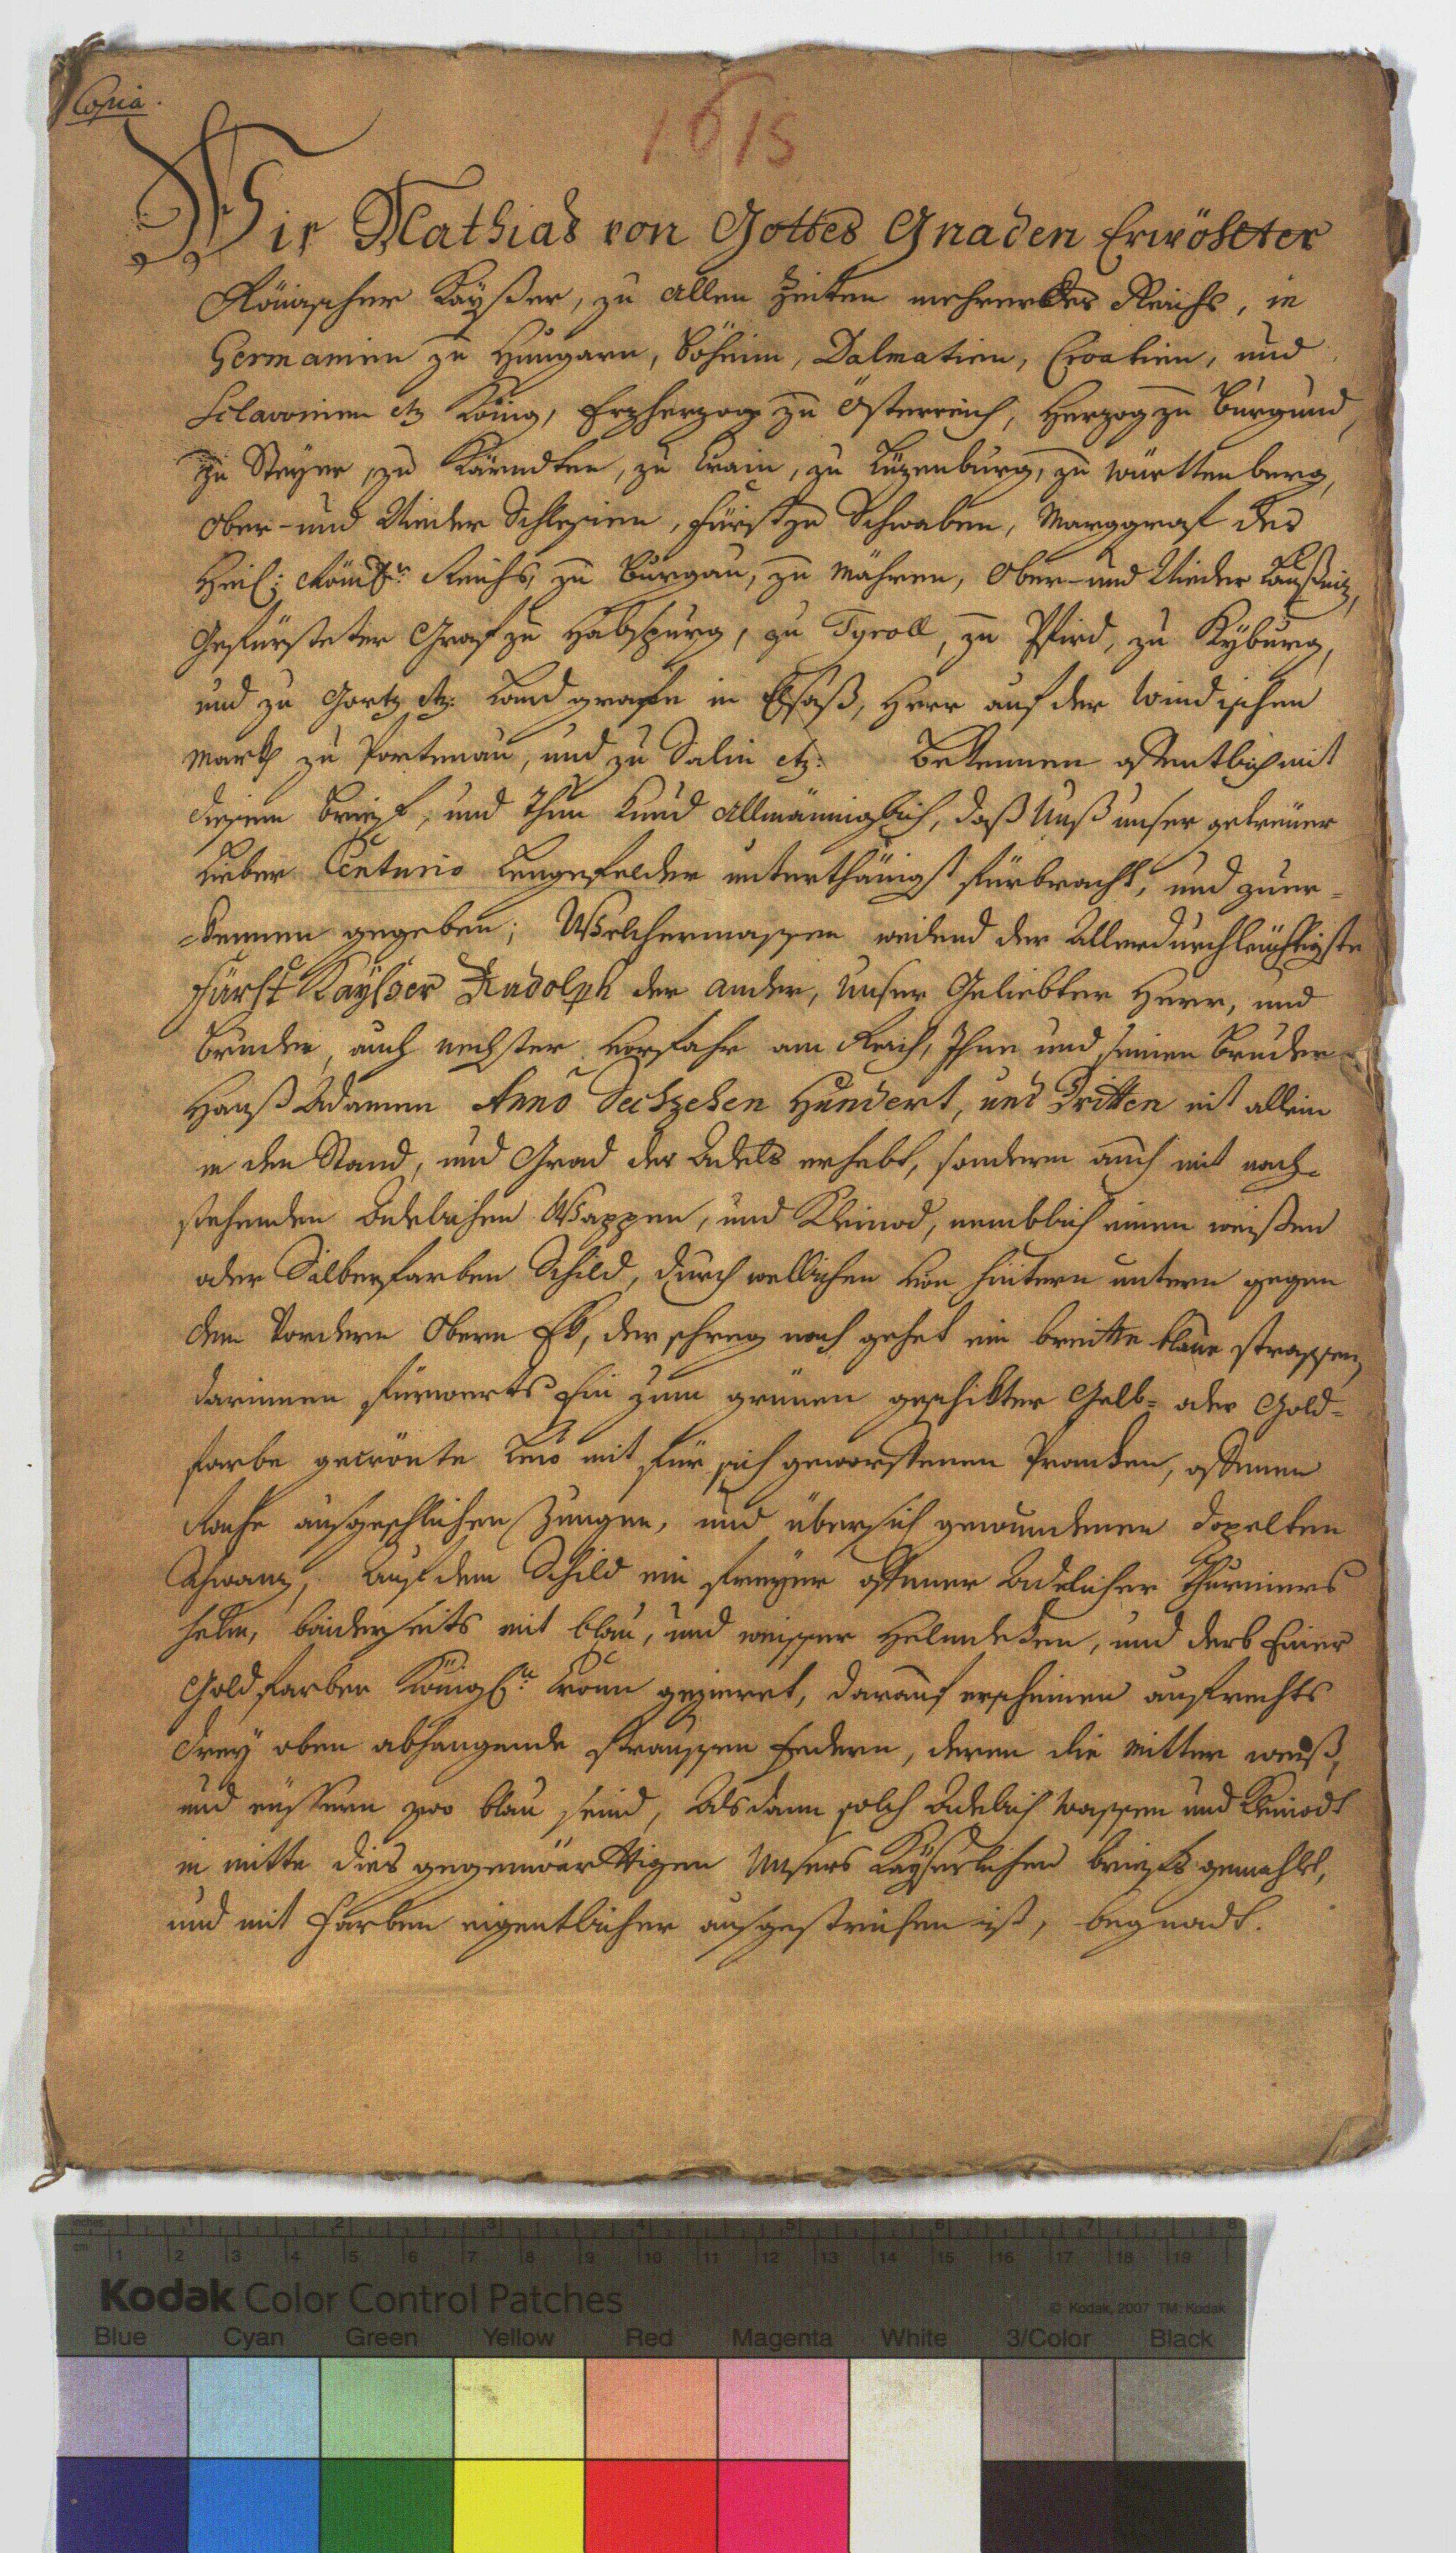 Copia.
1615
Wir Mathias von Gottes Gnaden Erwöhlter
Römischer Kayßer, zu allen Zeiten mehrer des Reichs, in
Germanien zu Hungarn, Böheim, Dalmatien, Croatien, und
Sclavonien etz König, Erzherzog zu Österreich, Herzog zu Burgund,
zu Steyer, zu Kärndten, zu Crain, zu Lüzenburg, zu Württenberg,
Ober- und Nieder Schlesien, Fürst zu Schwaben, Marggraf des
Heil: Röm: Reichs, zu Burgau, zu Mähren, Ober- und Nieder Laußniz,
Gefürsteter Graf zu Habspurg, zu Tyroll, zu Pfird, zu Kyburg,
und zu Gortz etz. Landgrafe in Elsaß, Herr auf der Windischen
March zu Portenau, und zu Salin etz: Bekennen offentlich mit
diesem Brief, und Thun kund allmänniglich, daß Unß unser getreüer
Lieber Centurio Lengefelder unterthänigst fürbracht, und zuer-
-kennen gegeben; Welchermassen weilend der Allerdurchleüchtigste
Fürst Kaysser Rudolph der ander, unser Geliebter Herr, und
Bruder, auch nechster Vorfahr am Reich, Ihne und seinen Bruder
Hanß Adamen Anno Sechzehen Hundert, und Dritten nit allein
in den Stand, und Grad des Adels erhebt, sondern auch mit nach-
stehenden Adelichen Wappen, und Kleinod, nemblich einen weißen
oder Silberfarben Schild, durch wellichen von hintern untern gegen
dem Vordern Obern Ek, der schreg nach gehet ein breitte blaue strassen,
darinnen fürwerts Ein zum grimen geschikter Gelb- oder Gold-
farbe gecrönte Lew mit für sich geworffenen Pranken, offenen
Rache ausgeschlichen Zungen, und übersich gewundenen dopelten
Schwanz, Auf dem Schild ein freyer offener Adelicher Thurniers
helm, baiderseits mit blau, und weisser Helmdeken, und derb Einer
Goldfarben Königl: Cron gezieret, darauf erscheinen aufrechts
drey oben abhangende straussen Federn, deren die mitter weiß,
und eüssern zwo blau seind, Alsdann solch Adelich Wappen und Kleinodt
in mitte dies gegenwärttigen Unsers Kayserlichen briefs gemahlt,
und mit Farben eigentlicher ausgestrichen ist, begnadt.
inches 1 2 3 4 5 6 7 8
cm 1 2 3 4 5 6 7 8 9 10 11 12 13 14 15 16 17 18 19
Kodak Color Control Patches
© Kodak, 2007 TM: Kodak
Blue Cyan Green Yellow Red Magenta White 3/Color Black